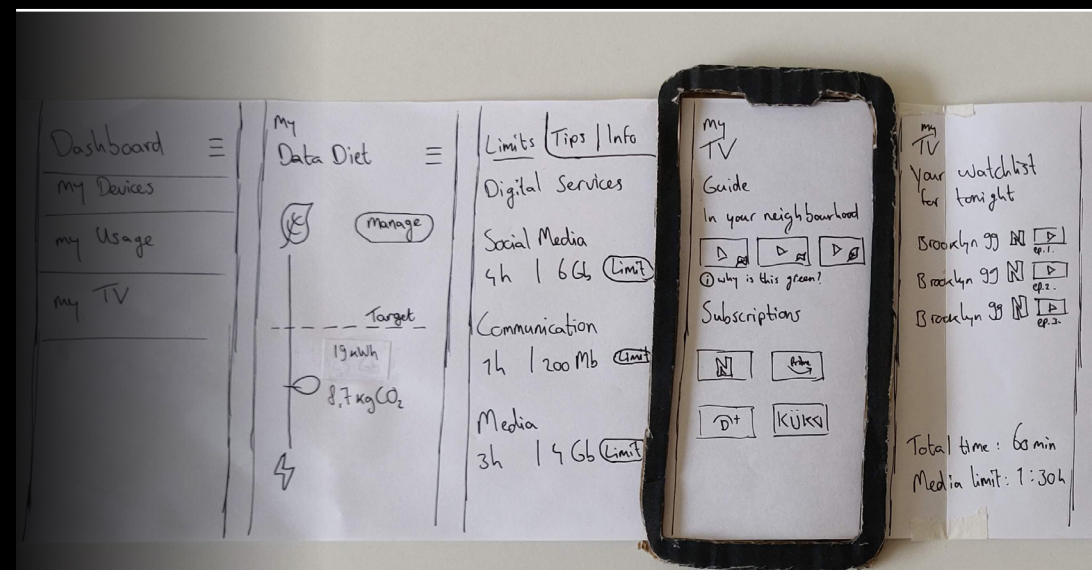 Dashboard
my Devices
my Usage
my TV
My
Data Diet
manage
Target
19 kWh
8,7 kg CO2
Limits | Tips | Info
Digital Services
Social Media
4h | 6Gb Limit
Communication
1h | 200 Mb Limit
Media
3h | 4 Gb Limit
my
TV
Guide
In your neighbourhood
i why is this green?
Subscriptions
N
Prime
D+
KÜKU
my
TV
Your watchlist
for tonight
Brooklyn 99 N
ep.1.
Brooklyn 99 N
ep.2.
Brooklyn 99 N
ep.3.
Total time: 60 min
Media limit: 1:30h